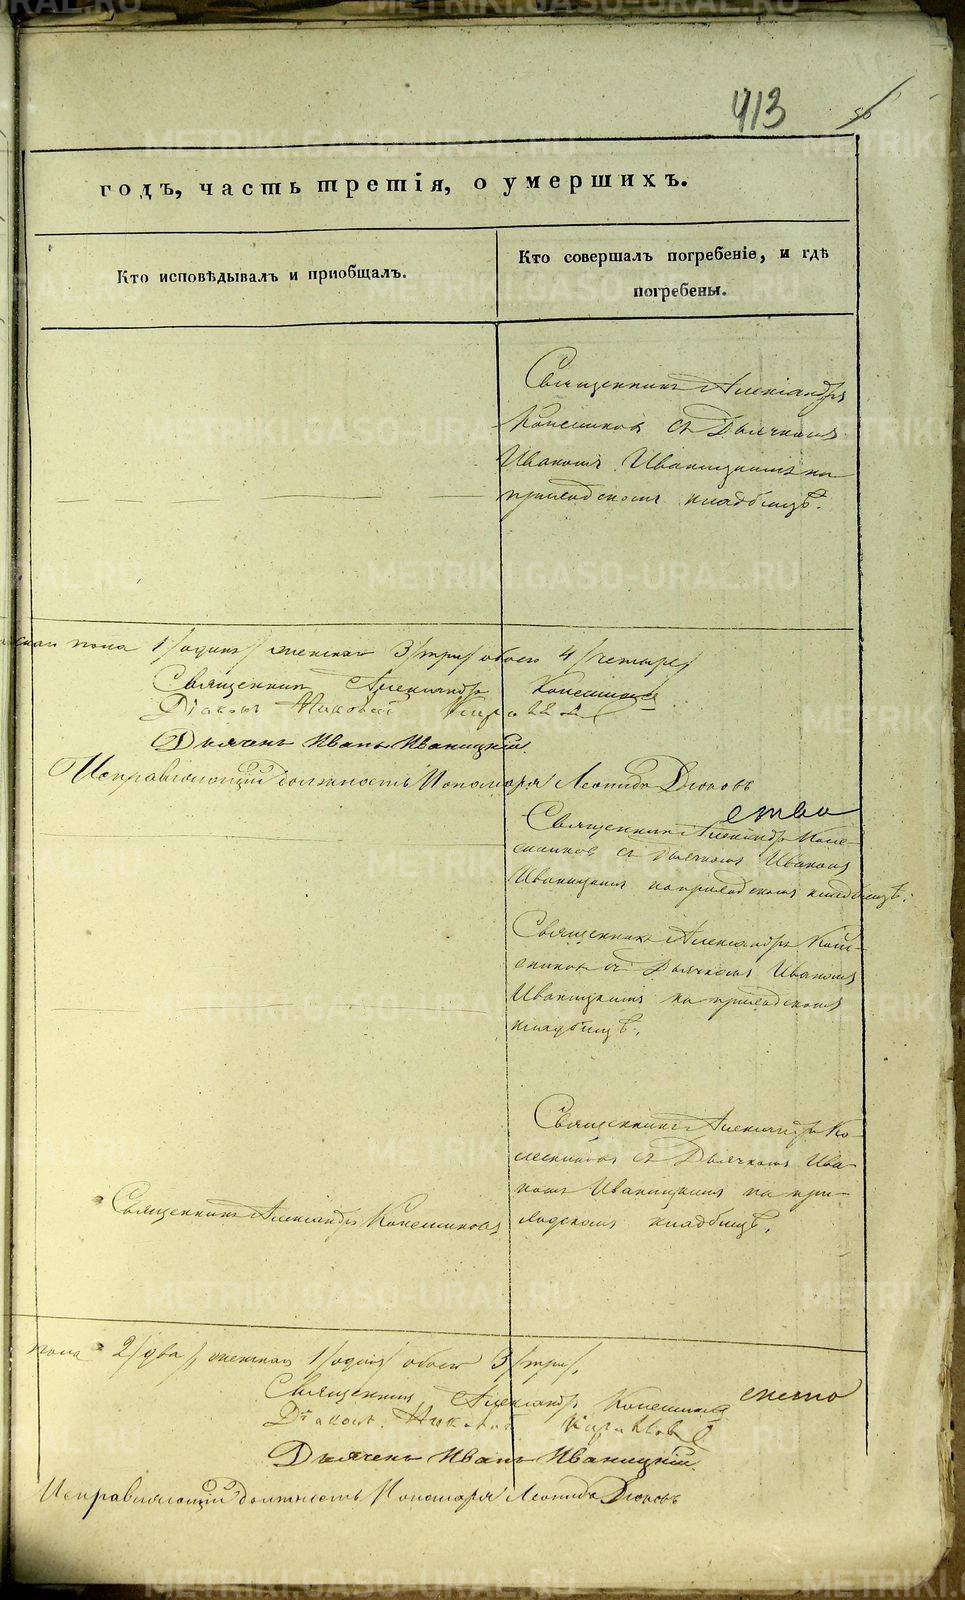 413
годъ, часть третія, о умершихъ.
Кто исповѣдывалъ и пріобщалъ.
Кто совершалъ погребеніе, и гдѣ
погребены.
Священникъ Александръ
Колесниковъ съ Дьячкомъ
Иваномъ Иваницкимъ на
приходскомъ кладбищѣ.
пола 1/одинъ/ женскаго 3/три/ обоего 4/четыре/
Священникъ Александръ Колесниковъ
Діаконъ Николай
Дьячекъ Иванъ Иваницкій.
Исправляющій должность Пономаря Леонидъ Дюковъ
ство
Священникъ Александръ Коле-
сниковъ съ дьячкомъ Иваномъ
Иваницкимъ на приходскомъ кладбищѣ.
Священникъ Александръ Коле-
сниковъ съ Дьячкомъ Иваномъ
Иваницкимъ на приходскомъ
кладбищѣ.
Священникъ Александръ Колесниковъ
Священникъ Александръ Ко-
лесниковъ съ Дьячкомъ Ива-
номъ Иваницкимъ на при-
ходскомъ кладбищѣ.
пола 2/два/, женскаго 1/одинъ/ обоего 3/три/.
Священникъ Александръ Колесниковъ
Діаконъ Николай
Дьячекъ Иванъ Иваницкій.
Исправляющій должность Пономаря Леонидъ Дюковъ
METRIKI.GASO-URAL.RU